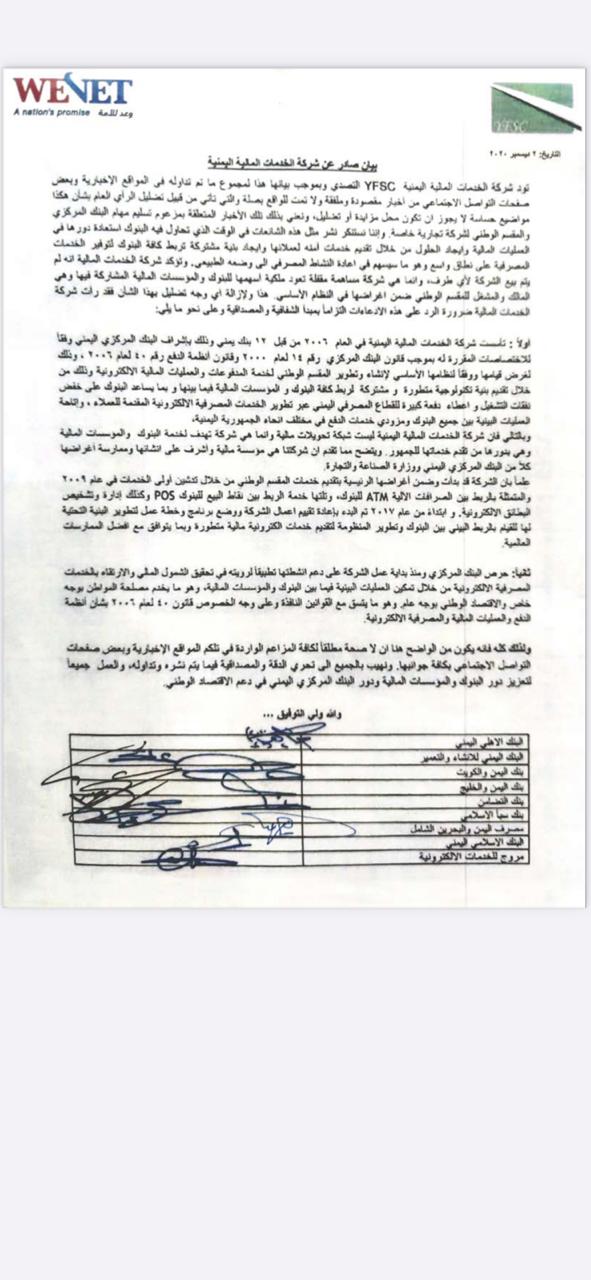 WENET
A nation's promise وعد للأمة
YFSC
التاريخ: ٢ ديسمبر ٢٠٢٠
بيان صادر عن شركة الخدمات المالية اليمنية
تود شركة الخدمات المالية اليمنية YFSC التصدي وبموجب بيانها هذا لمجموع ما تم تداوله في المواقع الاخبارية وبعض
صفحات التواصل الاجتماعي من أخبار مقصودة وملفقة ولا تمت للواقع بصلة والتي تأتي من قبيل تضليل الرأي العام بشأن هكذا
مواضيع حساسة لا يجوز ان تكون محل مزايدة أو تضليل، ونعني بذلك تلك الأخبار المتعلقة بمزعوم تسليم مهام البنك المركزي
والمقسم الوطني لشركة تجارية خاصة. وإننا نستنكر نشر مثل هذه الشائعات في الوقت الذي تحاول فيه البنوك استعادة دورها في
العمليات المالية وايجاد الحلول من خلال تقديم خدمات آمنه لعملائها وايجاد بنية مشتركة تربط كافة البنوك لتوفير الخدمات
المصرفية على نطاق واسع وهو ما سيسهم في اعادة النشاط المصرفي الى وضعه الطبيعي. وتؤكد شركة الخدمات المالية انه لم
يتم بيع الشركة لأي طرف، وانما هي شركة مساهمة مقفلة تعود ملكية اسهمها للبنوك والمؤسسات المالية المشاركة فيها وهي
المالك والمشغل للمقسم الوطني ضمن اغراضها في النظام الأساسي. هذا ولإزالة أي وجه تضليل بهذا الشأن فقد رأت شركة
الخدمات المالية ضرورة الرد على هذه الادعاءات التزاماً بمبدأ الشفافية والمصداقية وعلى نحو ما يلي:
أولاً : تأسست شركة الخدمات المالية اليمنية في العام ٢٠٠٦ من قبل ١٢ بنك يمني وذلك بإشراف البنك المركزي اليمني وفقاً
للاختصاصات المقررة له بموجب قانون البنك المركزي رقم ١٤ لعام ٢٠٠٠ وقانون أنظمة الدفع رقم ٤٠ لعام ٢٠٠٦ ، وذلك
لغرض قيامها ووفقاً لنظامها الأساسي لإنشاء وتطوير المقسم الوطني لخدمة المدفوعات والعمليات المالية الالكترونية وذلك من
خلال تقديم بنية تكنولوجية متطورة و مشتركة لربط كافة البنوك و المؤسسات المالية فيما بينها و بما يساعد البنوك على خفض
نفقات التشغيل و اعطاء دفعة كبيرة للقطاع المصرفي اليمني عبر تطوير الخدمات المصرفية الالكترونية المقدمة للعملاء ، وإتاحة
العمليات البينية بين جميع البنوك ومزودي خدمات الدفع في مختلف انحاء الجمهورية اليمنية،
وبالتالي فان شركة الخدمات المالية اليمنية ليست شبكة تحويلات مالية وانما هي شركة تهدف لخدمة البنوك والمؤسسات المالية
وهي بدورها من تقدم خدماتها للجمهور. ويتضح مما تقدم ان شركتنا هي مؤسسة مالية وأشرف على انشائها وممارسة أغراضها
كلاً من البنك المركزي اليمني ووزارة الصناعة والتجارة.
علماً بان الشركة قد بدأت وضمن أغراضها الرئيسية بتقديم خدمات المقسم الوطني من خلال تدشين أولى الخدمات في عام ٢٠٠٩
والمتمثلة بالربط بين الصرافات الالية ATM للبنوك، وتلتها خدمة الربط بين نقاط البيع للبنوك POS وكذلك إدارة وتشخيص
البطائق الالكترونية. و ابتداءً من عام ٢٠١٧ تم البدء بإعادة تقييم اعمال الشركة ووضع برنامج وخطة عمل لتطوير البنية التحتية
لها للقيام بالربط البيني بين البنوك وتطوير المنظومة لتقديم خدمات الكترونية مالية متطورة وبما يتوافق مع افضل الممارسات
العالمية.
ثانياً: حرص البنك المركزي ومنذ بداية عمل الشركة على دعم انشطتها تطبيقاً لرويته في تحقيق الشمول المالي والارتقاء بالخدمات
المصرفية الالكترونية من خلال تمكين العمليات البينية فيما بين البنوك والمؤسسات المالية، وهو ما يخدم مصلحة المواطن بوجه
خاص والاقتصاد الوطني بوجه عام. وهو ما يتسق مع القوانين النافذة وعلى وجه الخصوص قانون ٤٠ لعام ٢٠٠٦ بشأن أنظمة
الدفع والعمليات المالية والمصرفية الالكترونية.
ولذلك كله فانه يكون من الواضح هنا ان لا صحة مطلقاً لكافة المزاعم الواردة في تلكم المواقع الإخبارية وبعض صفحات
التواصل الاجتماعي بكافة جوانبها. ونهيب بالجميع الى تحري الدقة والمصداقية فيما يتم نشره وتداوله، والعمل جميعاً
لتعزيز دور البنوك والمؤسسات المالية ودور البنك المركزي اليمني في دعم الاقتصاد الوطني.
والله ولي التوفيق ...
البنك الاهلي اليمني
البنك اليمني للانشاء والتعمير
بنك اليمن والكويت
بنك اليمن والخليج
بنك التضامن
بنك سبأ الاسلامي
مصرف اليمن والبحرين الشامل
البنك الاسلامي اليمني
مروج للخدمات الالكترونية